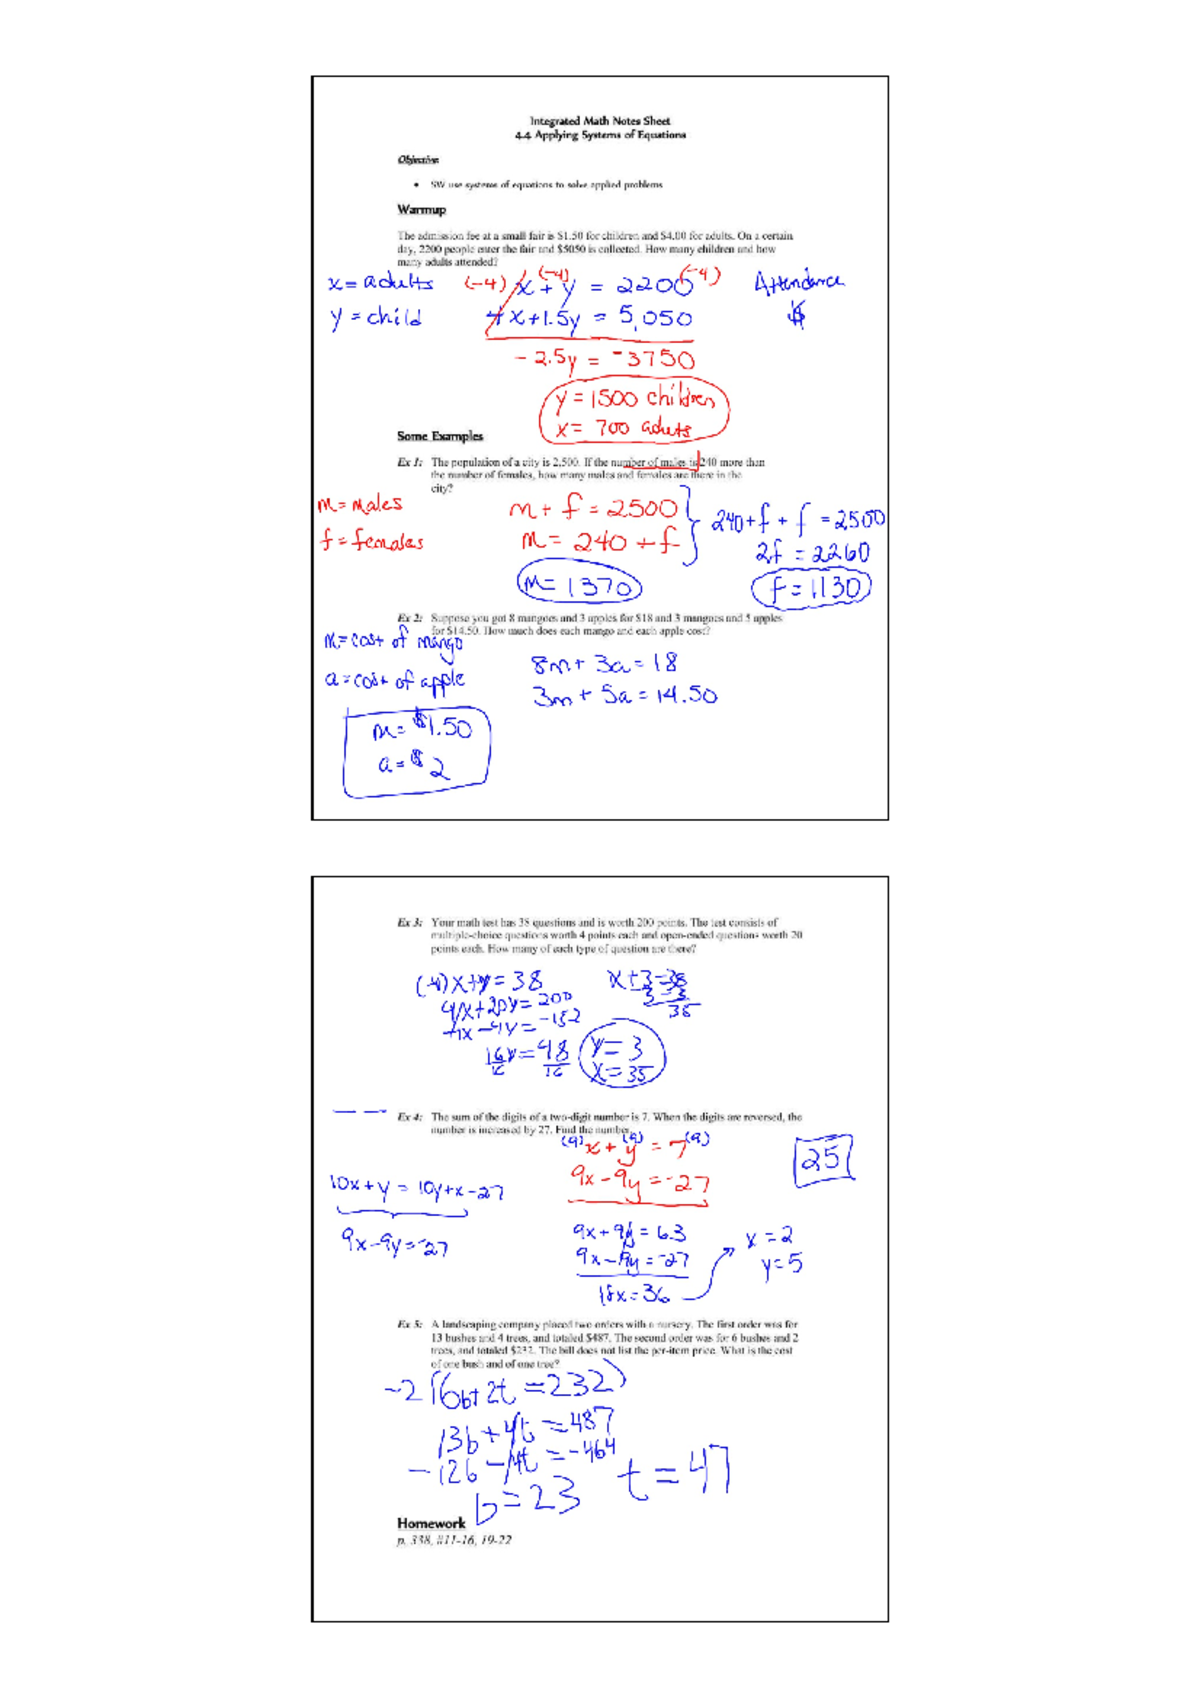 Integrated Math Notes Sheet
4.4 Applying Systems of Equations
Objective
• SW use systems of equations to solve applied problems
Warmup
The admission fee at a small fair is $1.50 for children and $4.00 for adults. On a certain
day, 2200 people enter the fair and $5050 is collected. How many children and how
many adults attended?
x = adults
(-4) x + y (-4) = 2200 (-4)
Attendance
y = child
4x + 1.5y = 5,050
$
- 2.5y = -3750
y = 1500 children
x = 700 aduts
Some Examples
Ex 1: The population of a city is 2,500. If the number of males is 240 more than
the number of females, how many males and females are there in the
city?
m = males
m + f = 2500
240 + f + f = 2500
f = females
m = 240 + f
2f = 2260
m = 1370
f = 1130
Ex 2: Suppose you got 8 mangoes and 3 apples for $18 and 3 mangoes and 5 apples
for $14.50. How much does each mango and each apple cost?
m = cost of mango
8m + 3a = 18
a = cost of apple
3m + 5a = 14.50
m = $1.50
a = $2
Ex 3: Your math test has 38 questions and is worth 200 points. The test consists of
multiple-choice questions worth 4 points each and open-ended questions worth 20
points each. How many of each type of question are there?
(-4)x+y = 38
x + 3 = 38
4x+20y = 200
3 -3
-4x -4y = -152
35
16y = 48
16 16
y = 3
x = 35
Ex 4: The sum of the digits of a two-digit number is 7. When the digits are reversed, the
number is increased by 27. Find the number.
(9) x + (9) y = 7 (9)
25
9x - 9y = -27
10x + y = 10y + x - 27
9x - 9y = -27
9x + 9y = 63
x = 2
9x - 9y = -27
y = 5
18x = 36
Ex 5: A landscaping company placed two orders with a nursery. The first order was for
13 bushes and 4 trees, and totaled $487. The second order was for 6 bushes and 2
trees, and totaled $232. The bill does not list the per-item price. What is the cost
of one bush and of one tree?
-2(6b+2t = 232)
13b + 4t = 487
-12b - 4t = -464
b = 23
t = 47
Homework
p. 338, #11-16, 19-22